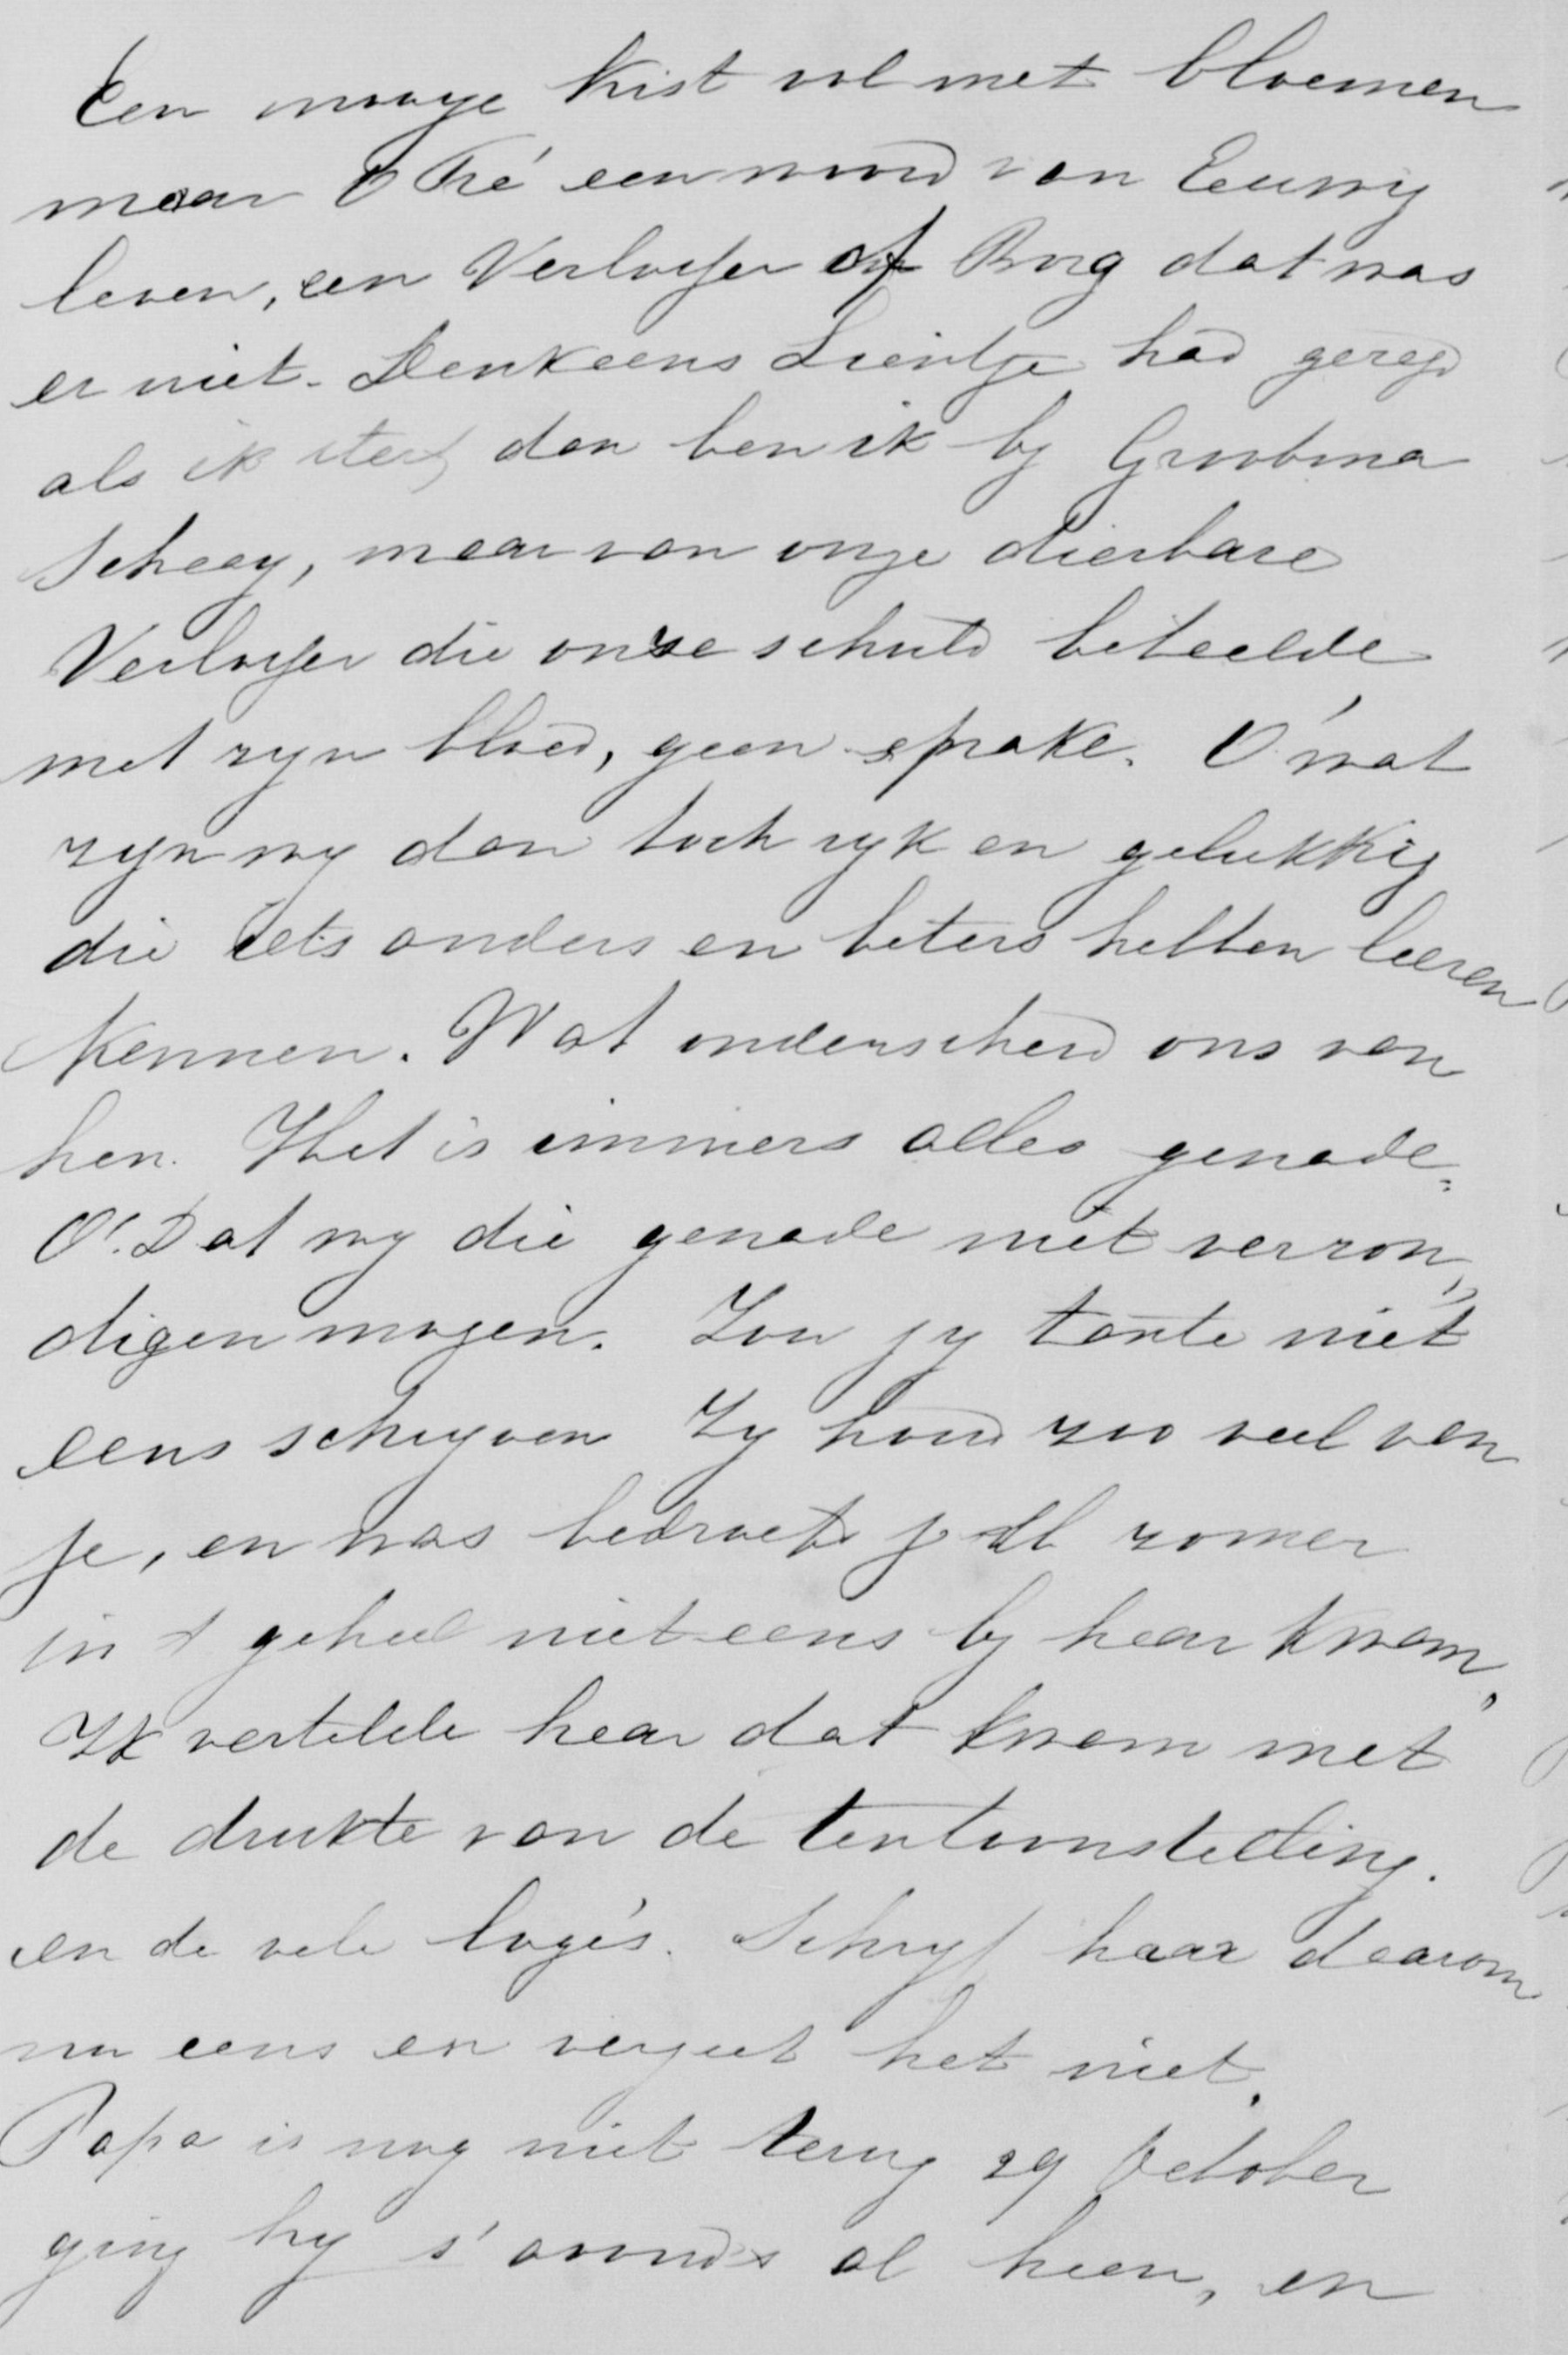 Een mooye kist vol met bloemen
maar O Tré een woord van Eeuwig
leven, een Verlosser of Borg dat was
er niet. Denk eens Lientje had gezegd
als ik sterf dan ben ik by Grootma
Scheey, maar van onze dierbare
Verlosser die onze schuld beteelde
met zyn bloed, geen sprake. O' wat
zyn wy dan toch ryk en gelukkig
die iets anders en beters hebben leeren
kennen. Wat onderscheid ons van
hen. Het is immers alles genade.
O'. Dat wy die genade niet verzon,,
digen mogen. Zou jy tante niet
eens schryven Zy houd zoo veel van
je, en was bedroefd je zomer
in t geheel niet eens by haar kwam,
Ik vertelde haar dat kwam met
de drukte van de tentoonstelling.
en de vele logés. Schryf haar daarom
nu eens en vergeet het niet.
Papa is nog niet terug 29 October
ging hy s' avonds al heen, en